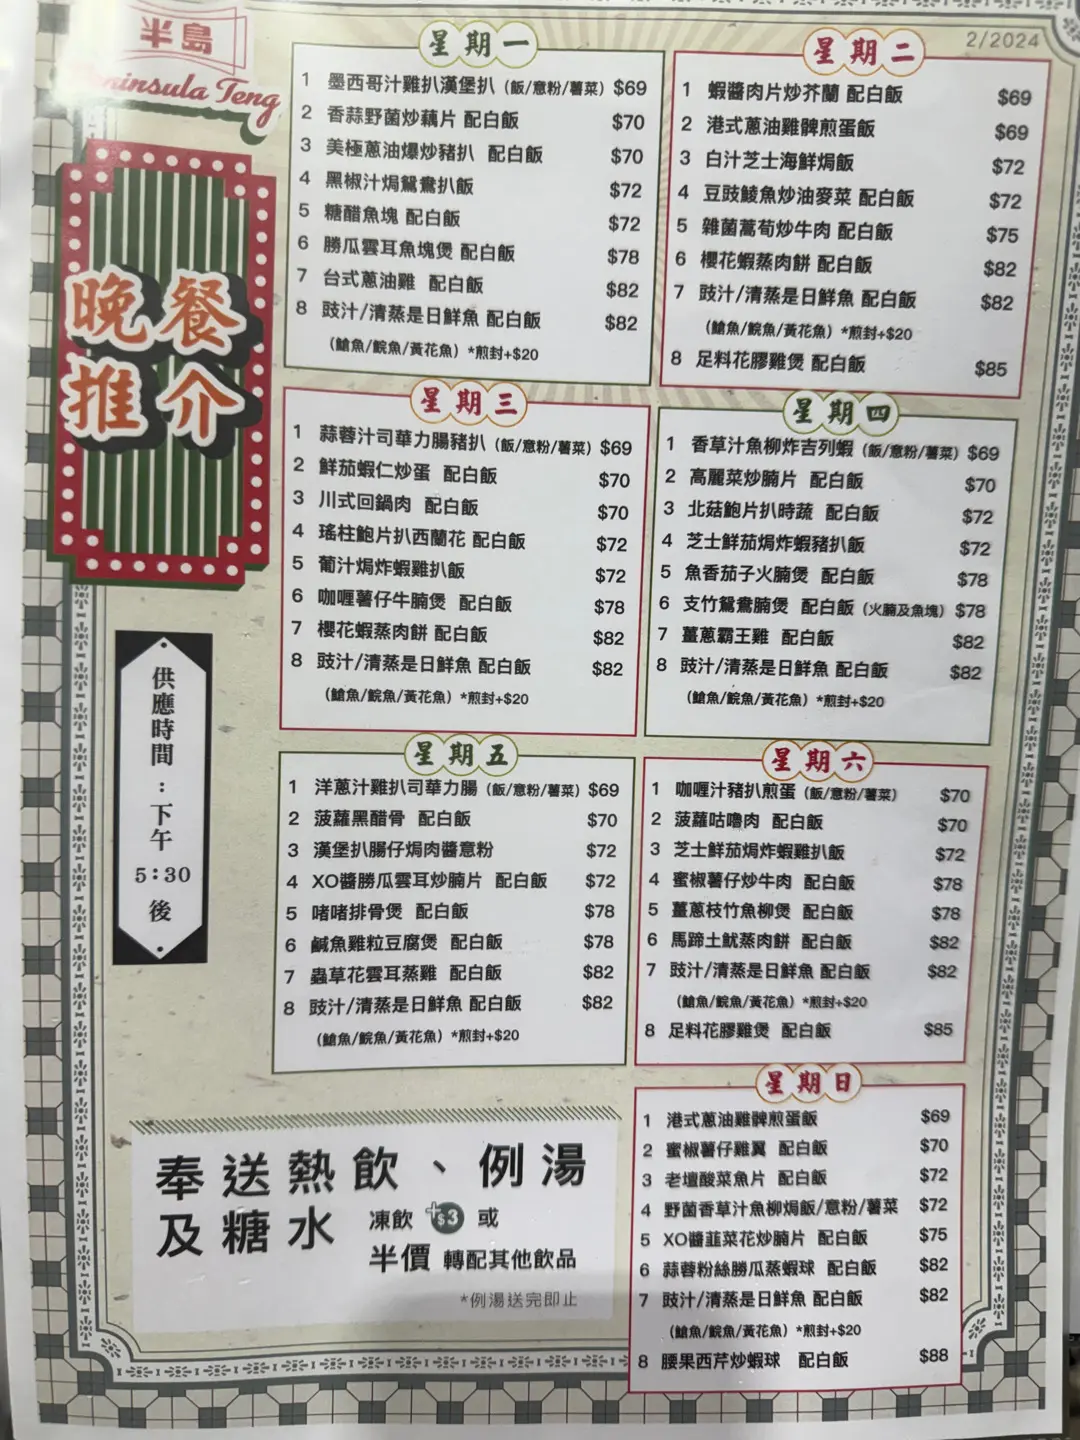 半島
Peninsula Teng
2/2024
晚餐
推介
供應時間：下午5:30後
星期一
1 墨西哥汁雞扒漢堡扒（飯/意粉/薯菜）$69
2 香蒜野菌炒藕片 配白飯 $70
3 美極蔥油爆炒豬扒 配白飯 $70
4 黑椒汁焗鴛鴦扒飯 $72
5 糖醋魚塊 配白飯 $72
6 勝瓜雲耳魚塊煲 配白飯 $78
7 台式蔥油雞 配白飯 $82
8 豉汁/清蒸是日鮮魚 配白飯 $82
（鯧魚/鯇魚/黃花魚）*煎封+$20
星期二
1 蝦醬肉片炒芥蘭 配白飯 $69
2 港式蔥油雞髀煎蛋飯 $69
3 白汁芝士海鮮焗飯 $72
4 豆豉鯪魚炒油麥菜 配白飯 $72
5 雜菌萵荀炒牛肉 配白飯 $75
6 櫻花蝦蒸肉餅 配白飯 $82
7 豉汁/清蒸是日鮮魚 配白飯 $82
（鯧魚/鯇魚/黃花魚）*煎封+$20
8 足料花膠雞煲 配白飯 $85
星期三
1 蒜蓉汁司華力腸豬扒（飯/意粉/薯菜）$69
2 鮮茄蝦仁炒蛋 配白飯 $70
3 川式回鍋肉 配白飯 $70
4 瑤柱鮑片扒西蘭花 配白飯 $72
5 葡汁焗炸蝦雞扒飯 $72
6 咖喱薯仔牛腩煲 配白飯 $78
7 櫻花蝦蒸肉餅 配白飯 $82
8 豉汁/清蒸是日鮮魚 配白飯 $82
（鯧魚/鯇魚/黃花魚）*煎封+$20
星期四
1 香草汁魚柳炸吉列蝦（飯/意粉/薯菜）$69
2 高麗菜炒腩片 配白飯 $70
3 北菇鮑片扒時蔬 配白飯 $72
4 芝士鮮茄焗炸蝦豬扒飯 $72
5 魚香茄子火腩煲 配白飯 $78
6 支竹鴛鴦腩煲 配白飯（火腩及魚塊）$78
7 薑蔥霸王雞 配白飯 $82
8 豉汁/清蒸是日鮮魚 配白飯 $82
（鯧魚/鯇魚/黃花魚）*煎封+$20
星期五
1 洋蔥汁雞扒司華力腸（飯/意粉/薯菜）$69
2 菠蘿黑醋骨 配白飯 $70
3 漢堡扒腸仔焗肉醬意粉 $72
4 XO醬勝瓜雲耳炒腩片 配白飯 $72
5 啫啫排骨煲 配白飯 $78
6 鹹魚雞粒豆腐煲 配白飯 $78
7 蟲草花雲耳蒸雞 配白飯 $82
8 豉汁/清蒸是日鮮魚 配白飯 $82
（鯧魚/鯇魚/黃花魚）*煎封+$20
星期六
1 咖喱汁豬扒煎蛋（飯/意粉/薯菜） $70
2 菠蘿咕嚕肉 配白飯 $70
3 芝士鮮茄焗炸蝦雞扒飯 $72
4 蜜椒薯仔炒牛肉 配白飯 $78
5 薑蔥枝竹魚柳煲 配白飯 $78
6 馬蹄土魷蒸肉餅 配白飯 $82
7 豉汁/清蒸是日鮮魚 配白飯 $82
（鯧魚/鯇魚/黃花魚）*煎封+$20
8 足料花膠雞煲 配白飯 $85
星期日
1 港式蔥油雞髀煎蛋飯 $69
2 蜜椒薯仔雞翼 配白飯 $70
3 老壇酸菜魚片 配白飯 $72
4 野菌香草汁魚柳焗飯/意粉/薯菜 $72
5 XO醬韮菜花炒腩片 配白飯 $75
6 蒜蓉粉絲勝瓜蒸蝦球 配白飯 $82
7 豉汁/清蒸是日鮮魚 配白飯 $82
（鯧魚/鯇魚/黃花魚）*煎封+$20
8 腰果西芹炒蝦球 配白飯 $88
奉送熱飲、例湯
及糖水 凍飲 +$3 或
半價 轉配其他飲品
*例湯送完即止